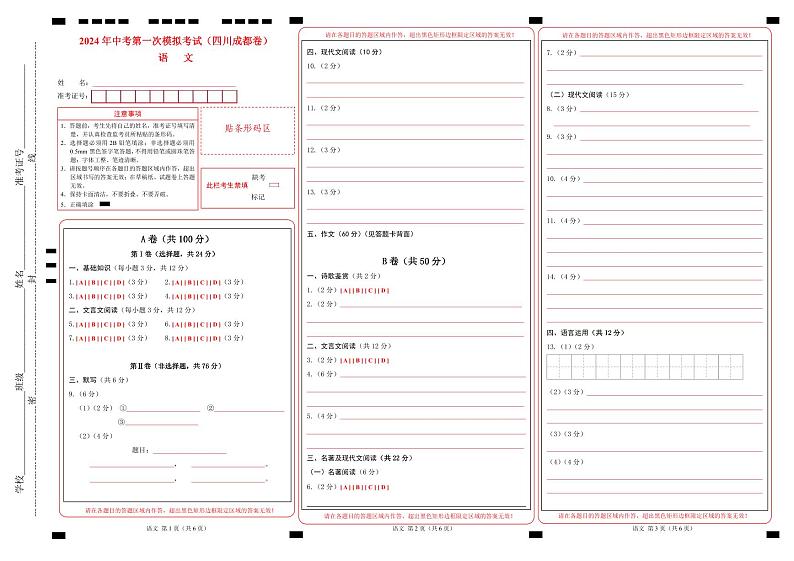 学校
班级
姓名
准考证号
密
封
线
2024 年中考第一次模拟考试（四川成都卷）
语 文
姓 名：
准考证号：
注意事项
1．答题前，考生先将自己的姓名，准考证号填写清
楚，并认真检查监考员所粘贴的条形码。
2．选择题必须用 2B 铅笔填涂；非选择题必须用
0.5mm 黑色签字笔答题，不得用铅笔或圆珠笔答
题；字体工整、笔迹清晰。
3．请按题号顺序在各题目的答题区域内作答，超出
区域书写的答案无效；在草稿纸、试题卷上答题
无效。
4．保持卡面清洁，不要折叠、不要弄破。
5．正确填涂
贴条形码区
此栏考生禁填
缺考
标记
A 卷（共 100 分）
第Ⅰ卷（选择题，共 24 分）
一、基础知识（每小题 3 分，共 12 分）
1.[A][B][C][D]（3 分） 2.[A][B][C][D]（3 分）
3.[A][B][C][D]（3 分） 4.[A][B][C][D]（3 分）
二、文言文阅读（每小题 3 分，共 12 分）
5.[A][B][C][D]（3 分） 6.[A][B][C][D]（3 分）
7.[A][B][C][D]（3 分） 8.[A][B][C][D]（3 分）
第Ⅱ卷（非选择题，共 76 分）
三、默写（共 6 分）
9.（6 分）
（1）（2 分） ① ②
③
（2）（4 分）
题目：
， 。
， 。
请在各题目的答题区域内作答，超出黑色矩形边框限定区域的答案无效！
语文 第 1 页（共 6 页）
请在各题目的答题区域内作答，超出黑色矩形边框限定区域的答案无效！
四、现代文阅读（10 分）
10.（2 分）
11.（2 分）
12.（3 分）
13.（3 分）
五、作文（60 分）（见答题卡背面）
B 卷（共 50 分）
一、诗歌鉴赏（共 2 分）
1.（2 分）[A][B][C][D]
2.（2 分）
二、文言文阅读（共 12 分）
3.（2 分）[A][B][C][D]
4.（6 分）
5.（4 分）
三、名著及现代文阅读（共 22 分）
（一）名著阅读（6 分）
6.（2 分）[A][B][C][D]
请在各题目的答题区域内作答，超出黑色矩形边框限定区域的答案无效！
语文 第 2 页（共 6 页）
请在各题目的答题区域内作答，超出黑色矩形边框限定区域的答案无效！
7.（2 分）
（二）现代文阅读（15 分）
8.（3 分）
9.（3 分）
10.（4 分）
11.（4 分）
14.（4 分）
四、语言运用（共 12 分）
13.（1）（2 分）
（2）（3 分）
（3）（3 分）
（4）（4 分）
请在各题目的答题区域内作答，超出黑色矩形边框限定区域的答案无效！
语文 第 3 页（共 6 页）